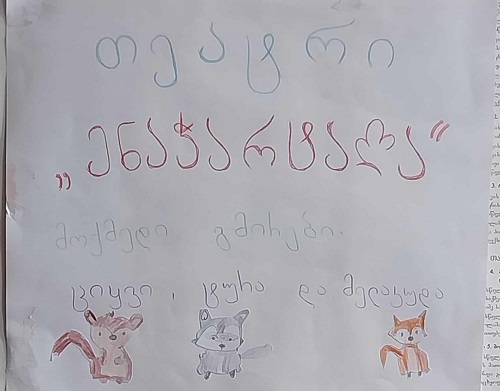 თეატრი
„ენაჭარტალა“
მოქმედი გმირები.
ციყვი, ტურა და მელაკუდა